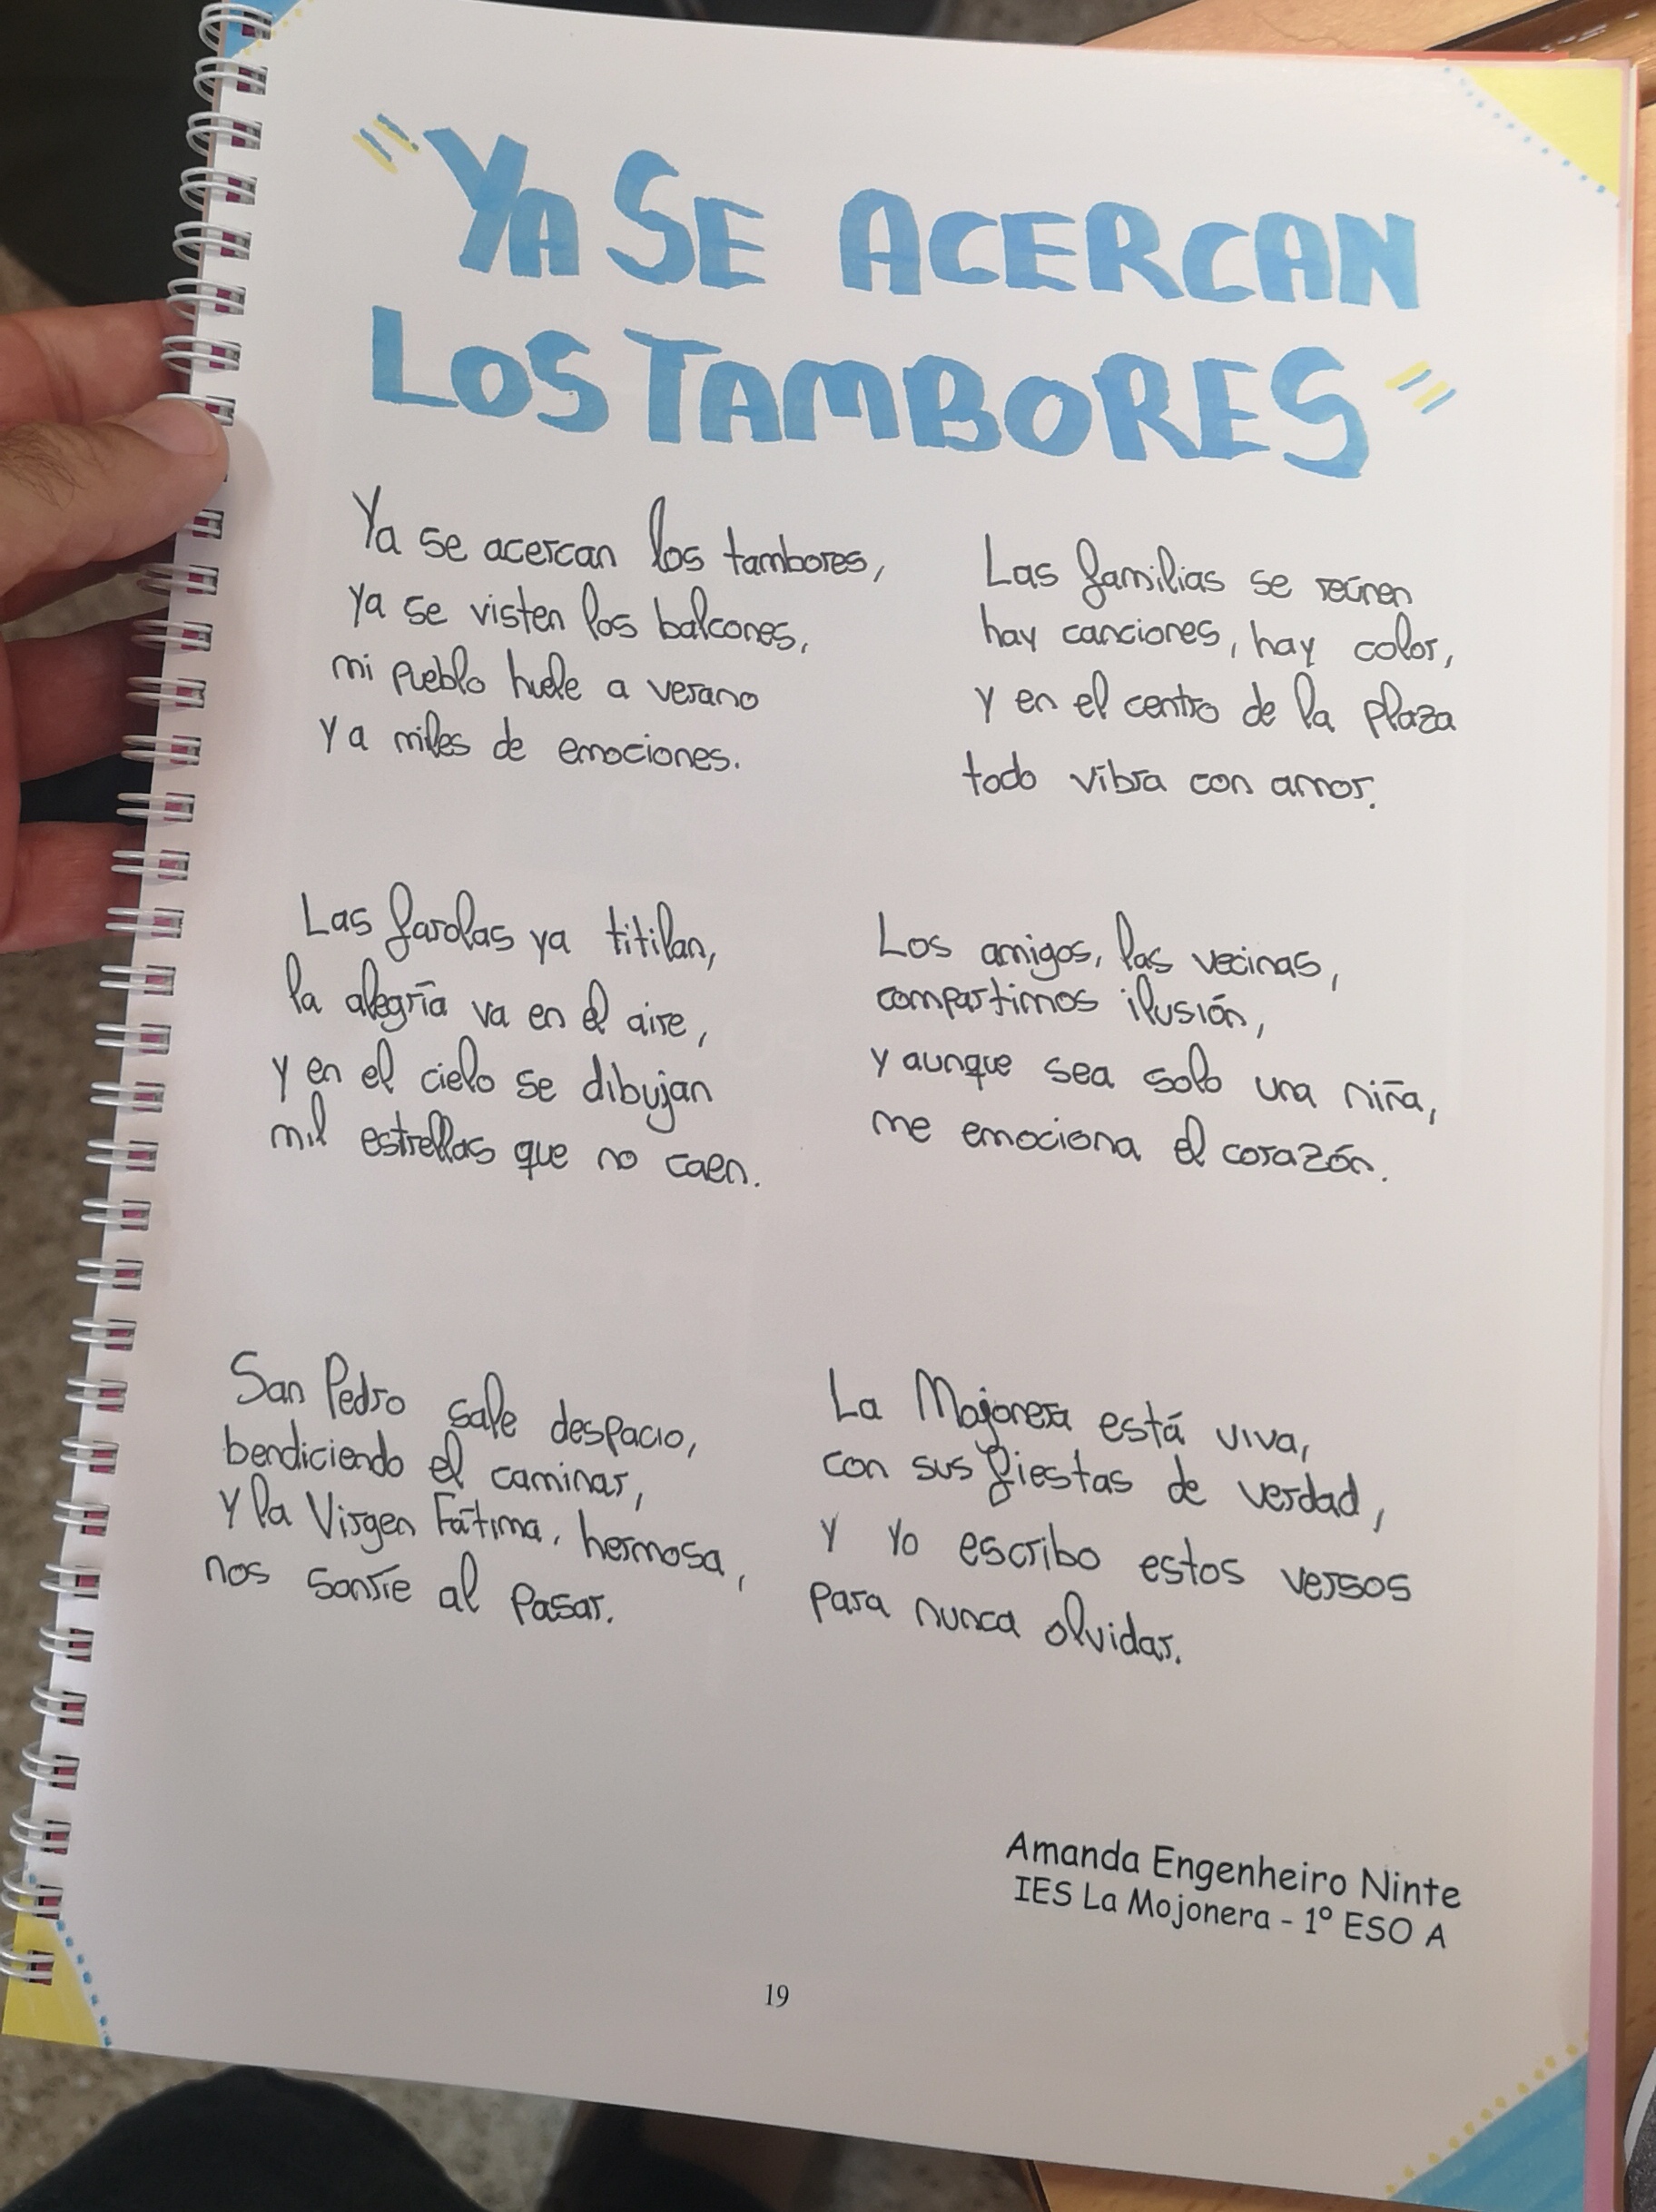 "YA SE ACERCAN
LOS TAMBORES"
Ya se acercan los tambores,
Ya se visten los balcones,
mi pueblo huele a verano
Y a miles de emociones.
Las farolas ya titilan,
la alegría va en el aire,
Y en el cielo se dibujan
mil estrellas que no caen.
San Pedro sale despacio,
bendiciendo el caminar,
Y la Virgen Fátima, hermosa,
nos sonríe al pasar.
Las familias se reúnen
hay canciones, hay color,
Y en el centro de la plaza
todo vibra con amor.
Los amigos, las vecinas,
compartimos ilusión,
Y aunque sea solo una niña,
me emociona el corazón.
La Mojonera está viva,
con sus fiestas de verdad,
Y yo escribo estos versos
para nunca olvidar.
Amanda Engenheiro Ninte
IES La Mojonera - 1º ESO A
19